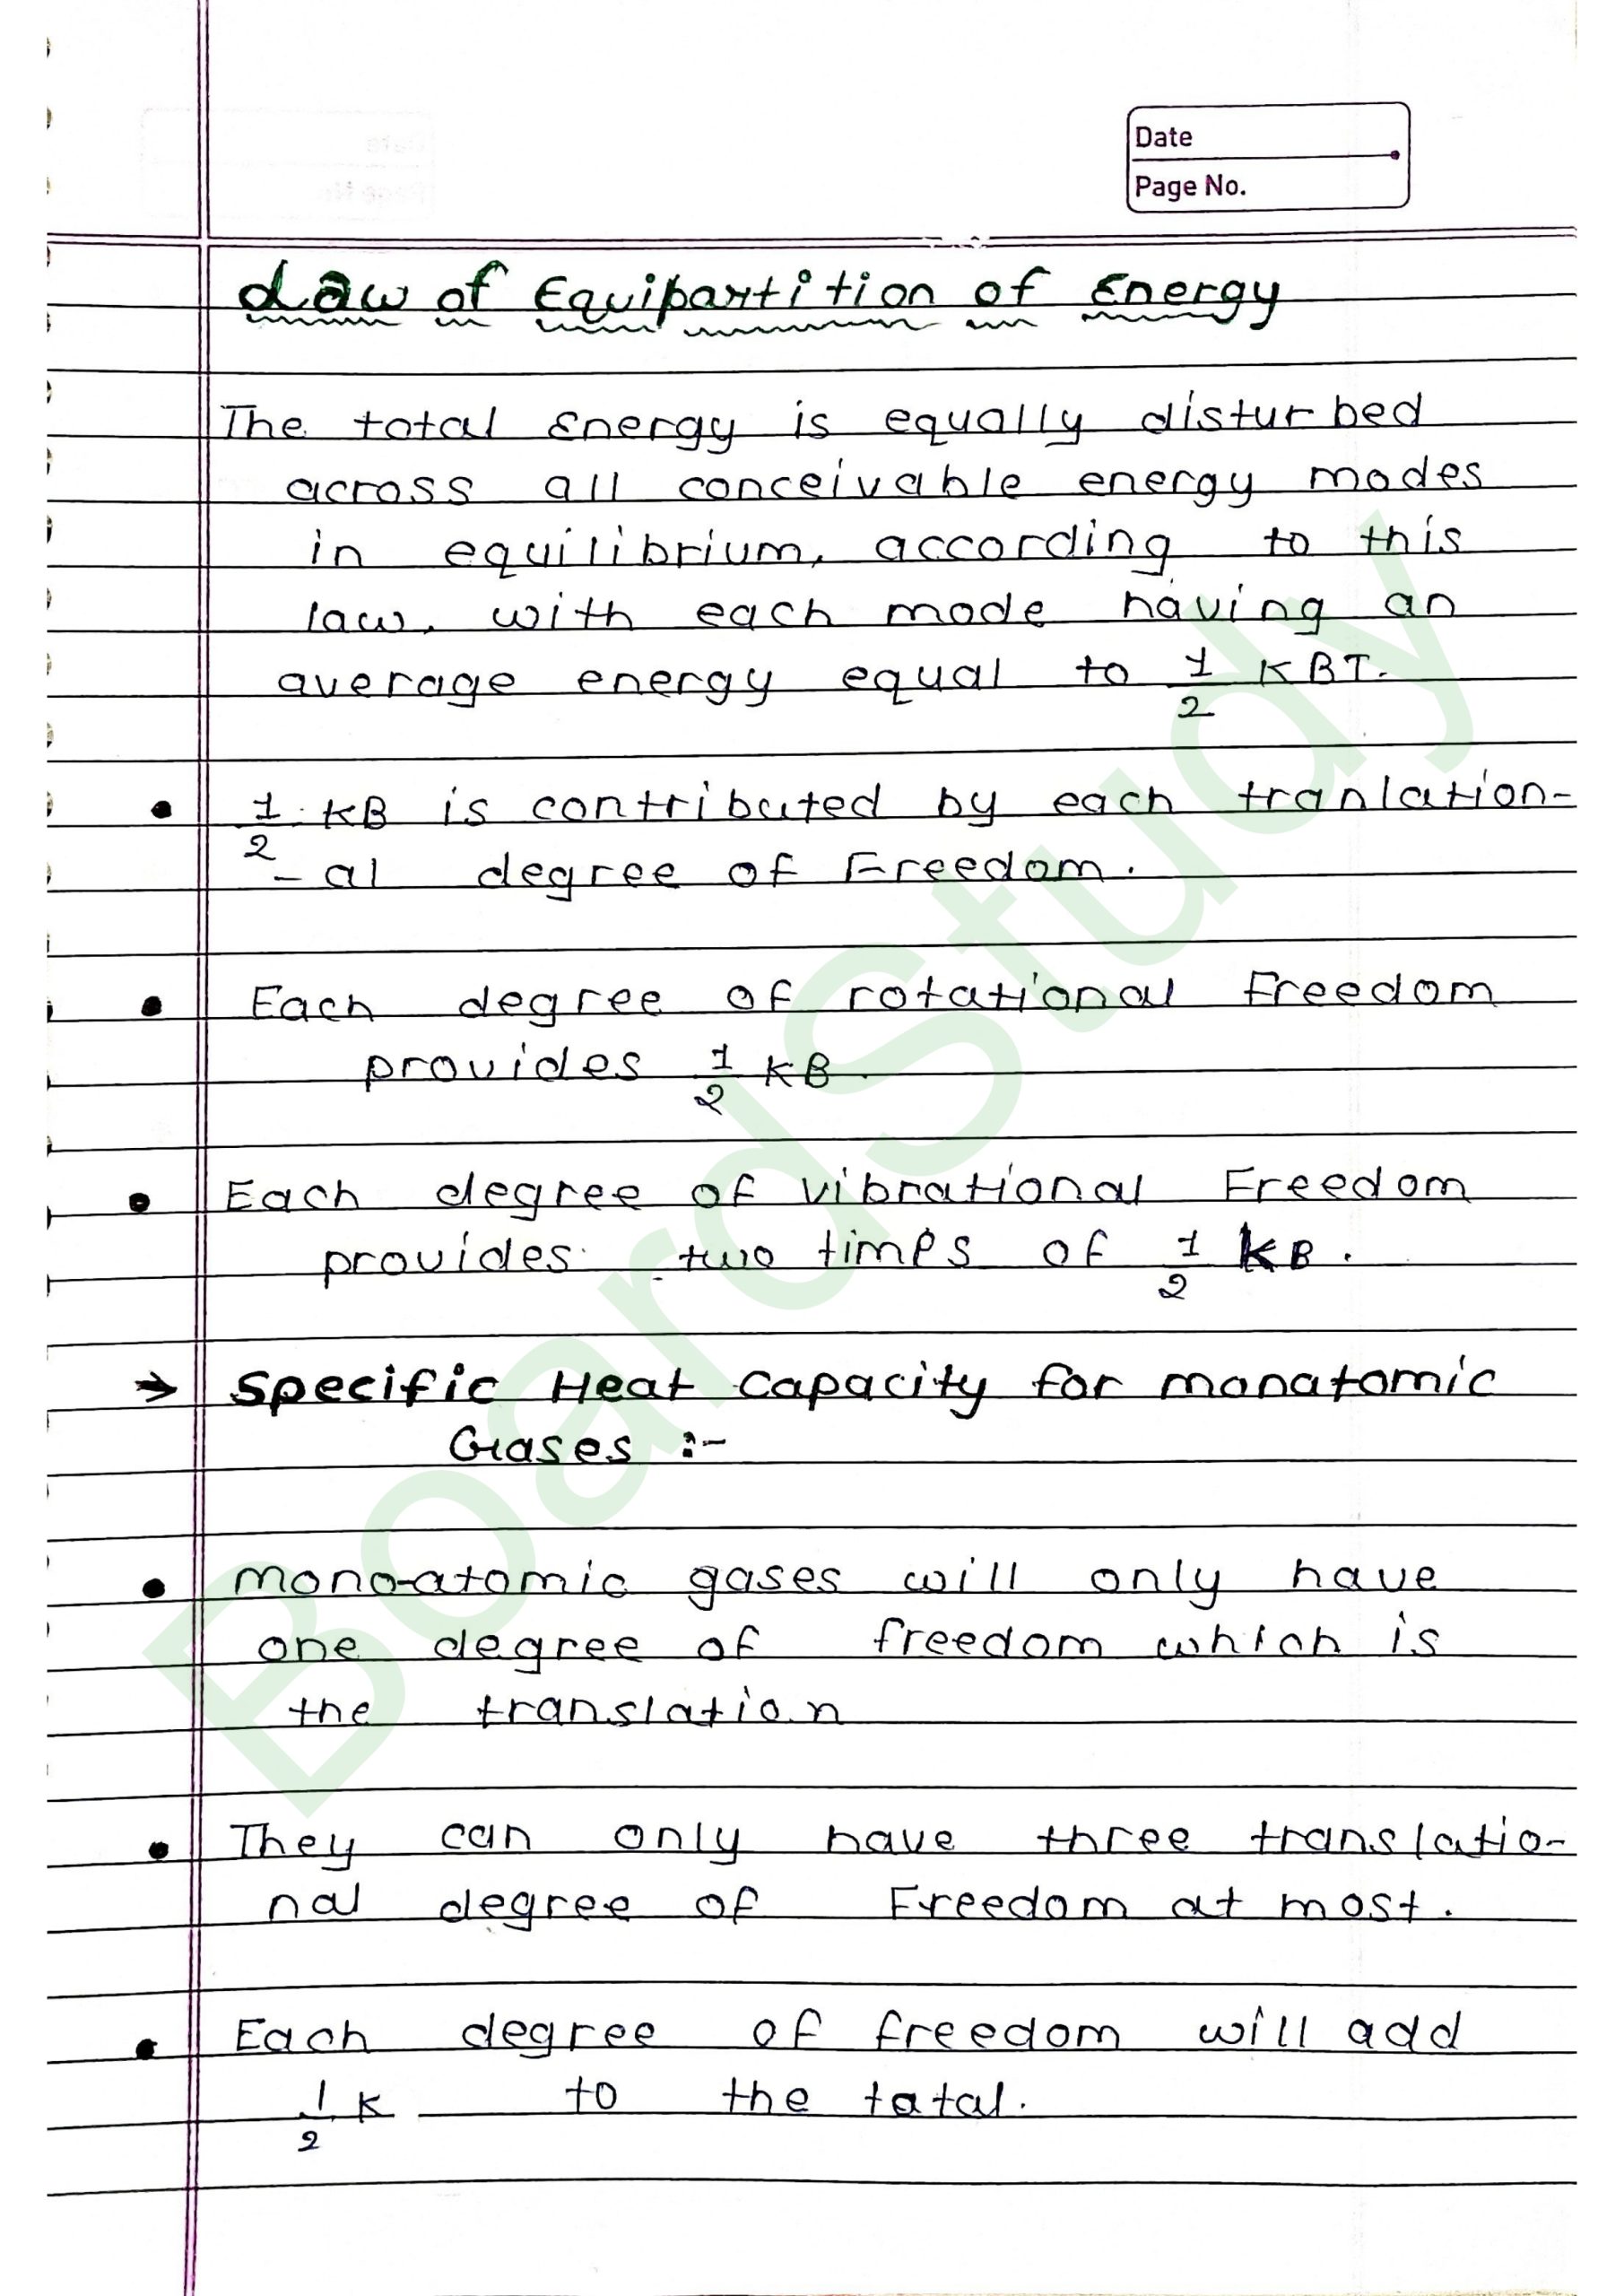 Date
Page No.
Law of Equipartition of Energy
The total Energy is equally disturbed
across all conceivable energy modes
in equilibrium, according to this
law, with each mode having an
average energy equal to 1/2 KBT.
• 1/2 KB is contributed by each tranlation-
- al degree of Freedom.
• Each degree of rotational Freedom
provides 1/2 KB.
• Each degree of vibrational Freedom
provides two times of 1/2 KB.
→ Specific Heat Capacity for monatomic
Gases :-
• mono-atomic gases will only have
one degree of freedom which is
the translation
• They can only have three translatio-
nal degree of Freedom at most.
• Each degree of freedom will add
1/2 K to the tatal.
BoardStudy